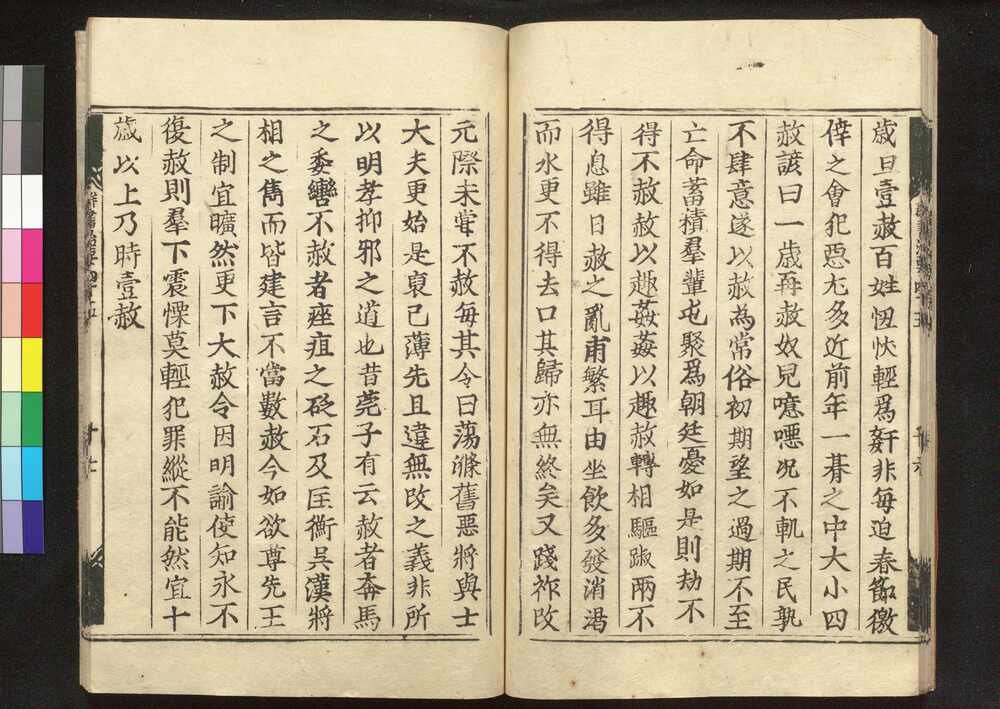 歲旦壹赦百姓忸忕輕爲姧非每迫春節徼
倖之會犯惡尤多近前年一朞之中大小四
赦諺曰一歲再赦奴兒噫噁况不軌之民孰
不肆意遂以赦為常俗初期望之過期不至
亡命蓄積羣輩屯聚爲朝廷憂如是則劫不
得不赦赦以趣姦姦以趣赦轉相驅踧兩不
得息雖日赦之亂甫繁耳由坐飲多發消渴
而水更不得去口其歸亦無終矣又踐祚改
元際未甞不赦每其令曰蕩滌舊惡將與士
大夫更始是裒己薄先且違無改之義非所
以明孝抑邪之道也昔莞子有云赦者奔馬
之委轡不赦者痤疽之砭石及匡衡吳漢將
相之雋而皆建言不當數赦今如欲尊先王
之制宜曠然更下大赦令因明諭使知永不
復赦則羣下震慄莫輕犯罪縱不能然宜十
歲以上乃時壹赦